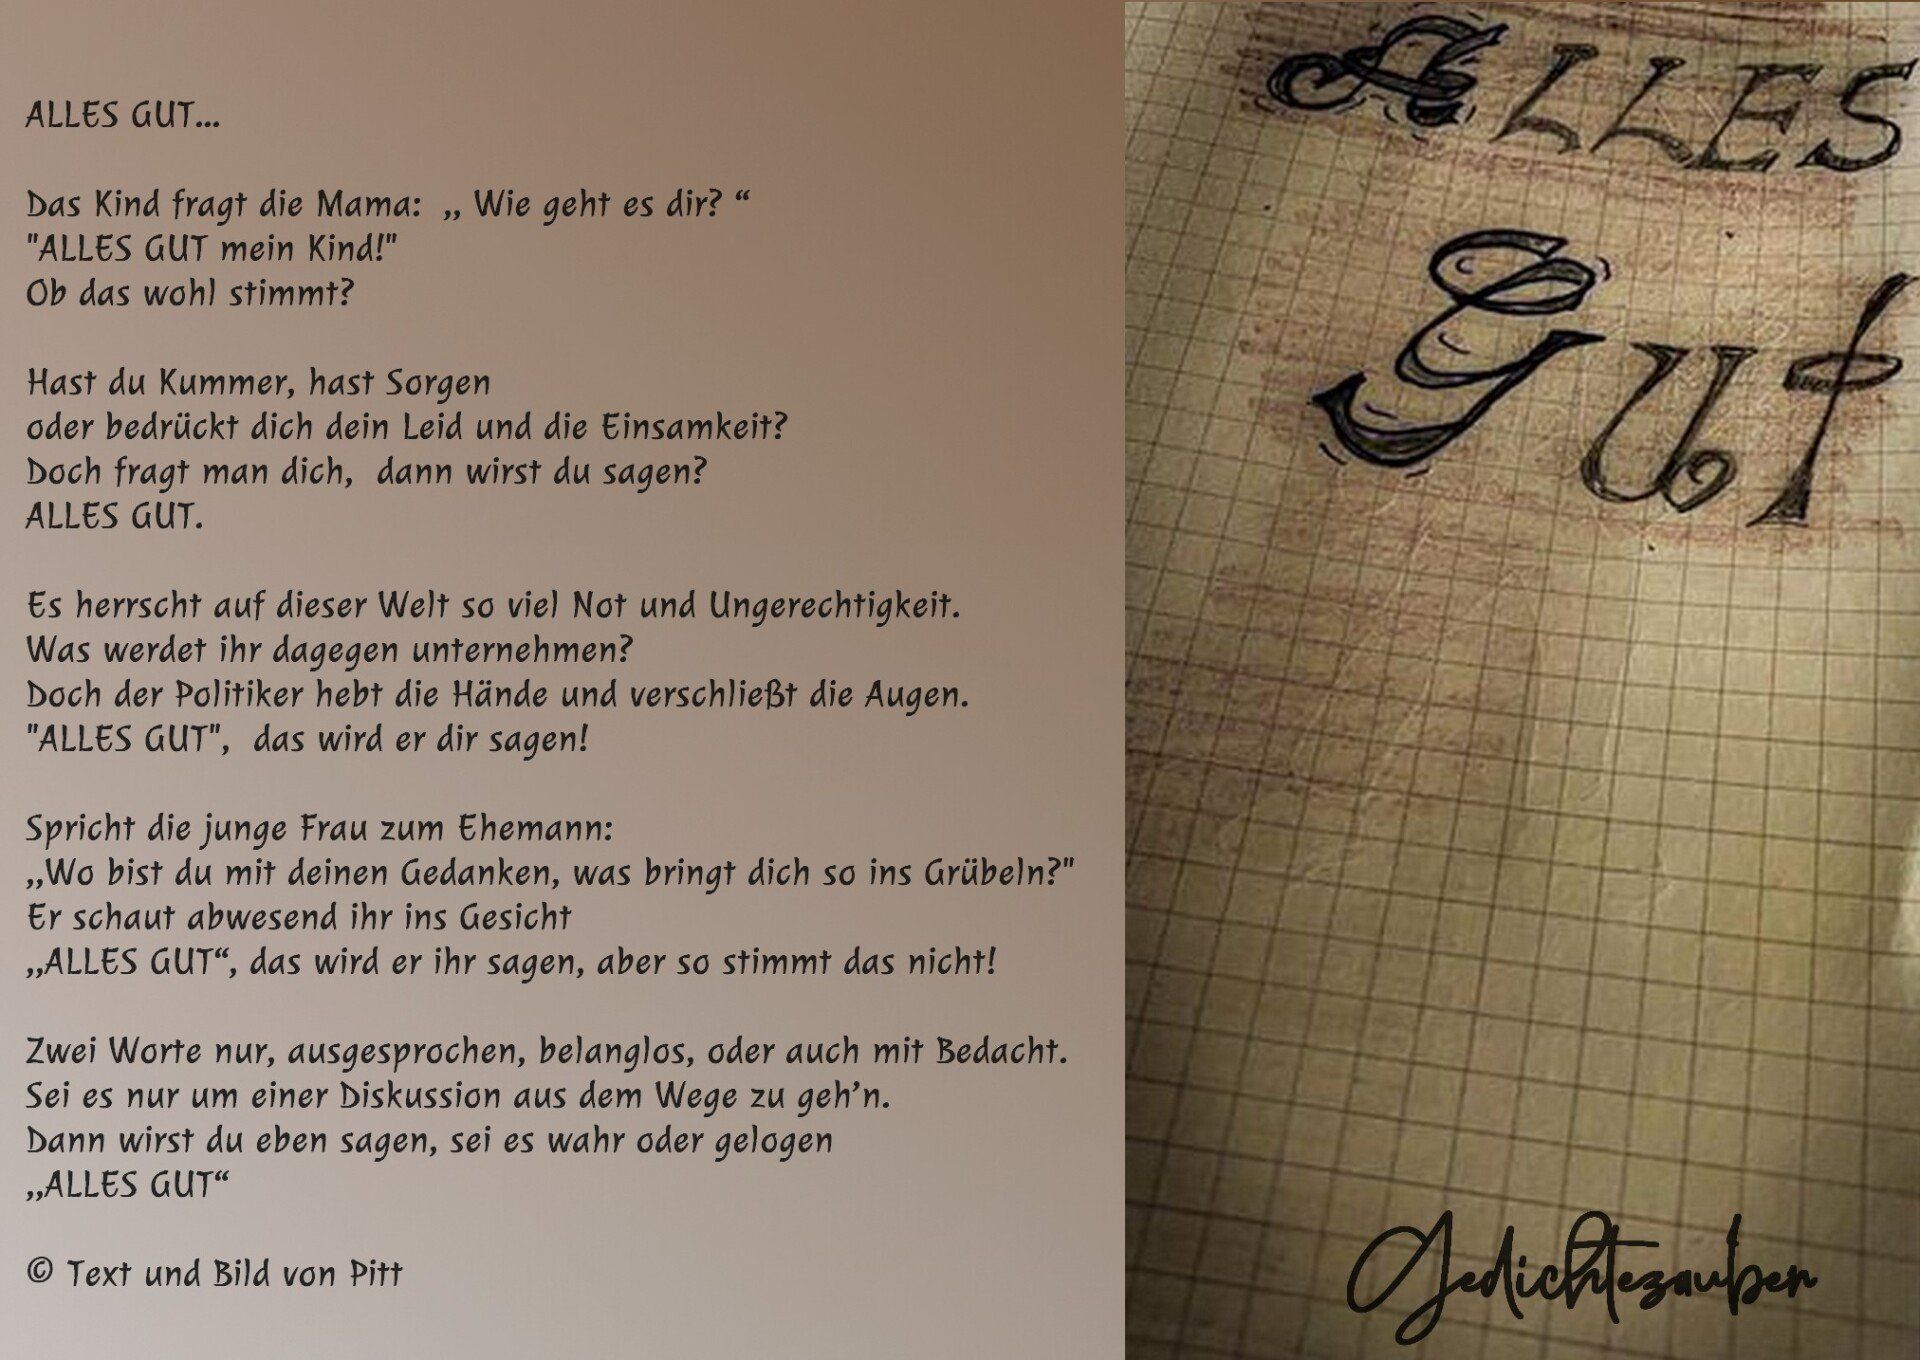 ALLES GUT...
Das Kind fragt die Mama:  ,, Wie geht es dir? “
"ALLES GUT mein Kind!"
Ob das wohl stimmt?
Hast du Kummer, hast Sorgen
oder bedrückt dich dein Leid und die Einsamkeit?
Doch fragt man dich,  dann wirst du sagen?
ALLES GUT.
Es herrscht auf dieser Welt so viel Not und Ungerechtigkeit.
Was werdet ihr dagegen unternehmen?
Doch der Politiker hebt die Hände und verschließt die Augen.
"ALLES GUT",  das wird er dir sagen!
Spricht die junge Frau zum Ehemann:
,,Wo bist du mit deinen Gedanken, was bringt dich so ins Grübeln?"
Er schaut abwesend ihr ins Gesicht
,,ALLES GUT“, das wird er ihr sagen, aber so stimmt das nicht!
Zwei Worte nur, ausgesprochen, belanglos, oder auch mit Bedacht.
Sei es nur um einer Diskussion aus dem Wege zu geh’n.
Dann wirst du eben sagen, sei es wahr oder gelogen
,,ALLES GUT“
© Text und Bild von Pitt
ALLES
Gut
Gedichtezauber